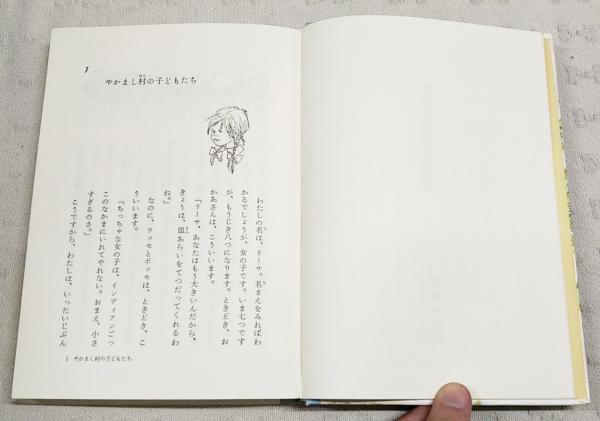 1
やかまし村の子どもたち
わたしの名は、リーサ。名まえをみればわ
かるでしょうが、女の子です。いま七つです
が、もうじき八つになります。ときどき、お
かあさんは、こういいます。
「リーサ、あなたはもう大きいんだから、
きょうは、皿あらいをてつだってくれるわ
ね。」
なのに、ラッセとボッセは、ときどき、こ
ういいます。
「ちっちゃな女の子は、インディアンごっ
このなかまにいれてやれない。おまえ、小さ
すぎるのさ。」
こうですから、わたしは、いったいじぶん
1 やかまし村の子どもたち